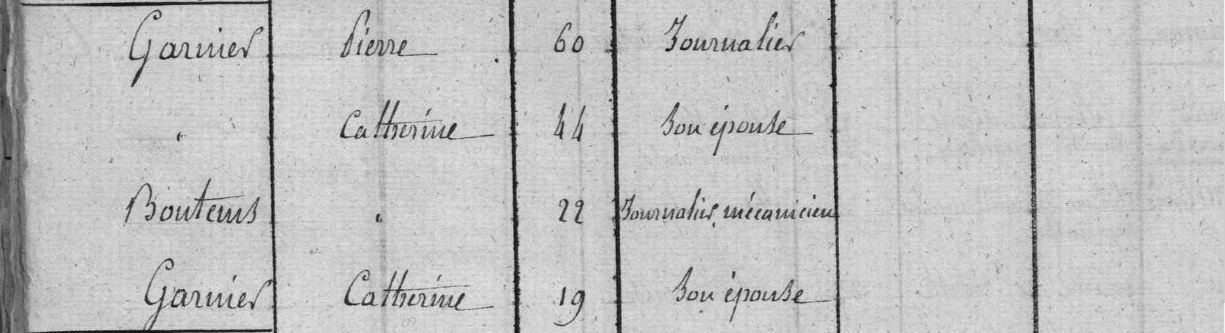 Garnier Pierre 60 Journalier
" Catherine 44 Son épouse
Boutems " 22 Journalier, mécanicien
Garnier Catherine 19 Son épouse